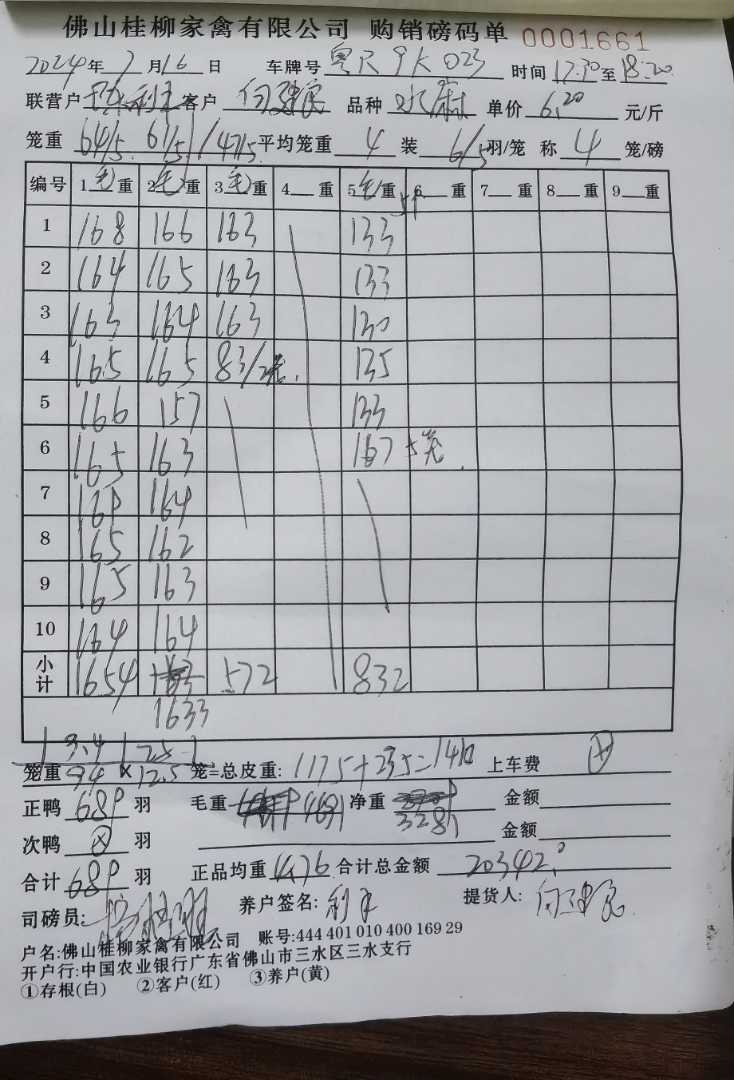 佛山桂柳家禽有限公司 购销磅码单 0001661
2024年7月16日 车牌号 9K 023 时间17:30至18:20
联营户 利 客户 品种 水麻 单价 6.20 元/斤
笼重 64/5 61/5 /47/5 平均笼重 4 装 6/5 羽/笼 称 4 笼/磅
编号 1毛重 2毛重 3毛重 4 重 5毛重 6 重 7 重 8 重 9 重
1 168 166 163 133
2 164 165 163 133
3 163 164 163 130
4 165 165 83/2笼. 135
5 166 157 133
6 165 163 167 5笼.
7 169 164
8 165 162
9 165 163
10 164 164
小计 1654 572 832
1633
9.4 125
笼重 94 × 12.5 笼=总皮重: 1175+235=1410 上车费
正鸭 689 羽 毛重 4691 净重 3281 金额
次鸭 羽 金额
合计 689 羽 正品均重 4.76 合计总金额 20342.0
司磅员: 养户签名: 利 提货人:
户名:佛山桂柳家禽有限公司 账号:444 401 010 400 169 29
开户行:中国农业银行广东省佛山市三水区三水支行
①存根(白) ②客户(红) ③养户(黄)